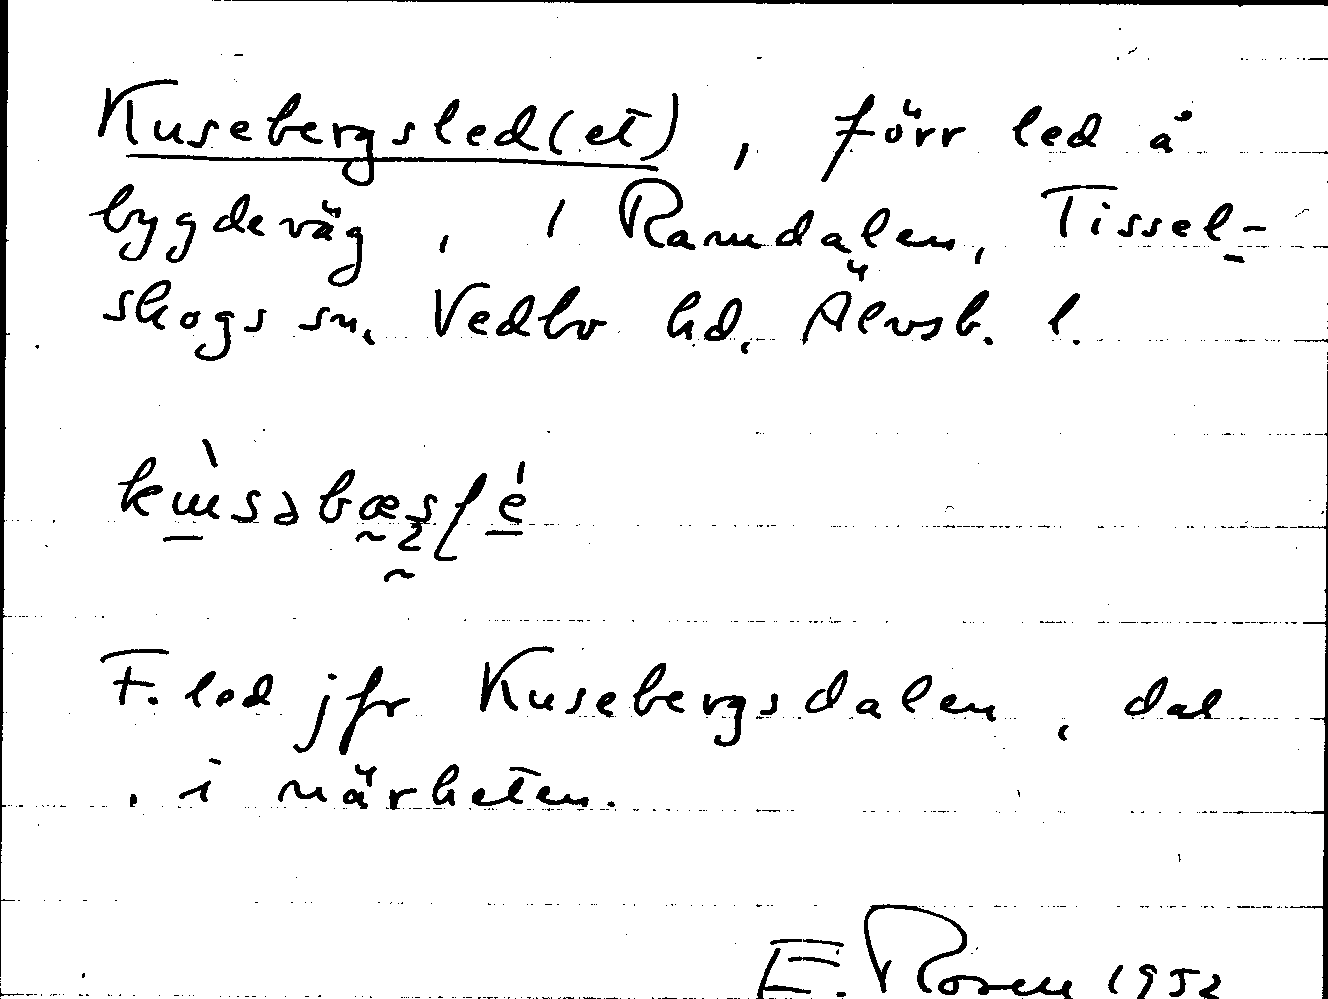 Kusebergsled(et), förr led å
bygdeväg, i Ramdalen, Tissel-
skogs sn. Vedbo hd. Älvsb. l.
F. led jfr Kusebergsdalen, dal
i närheten.
E. Rosen 1952